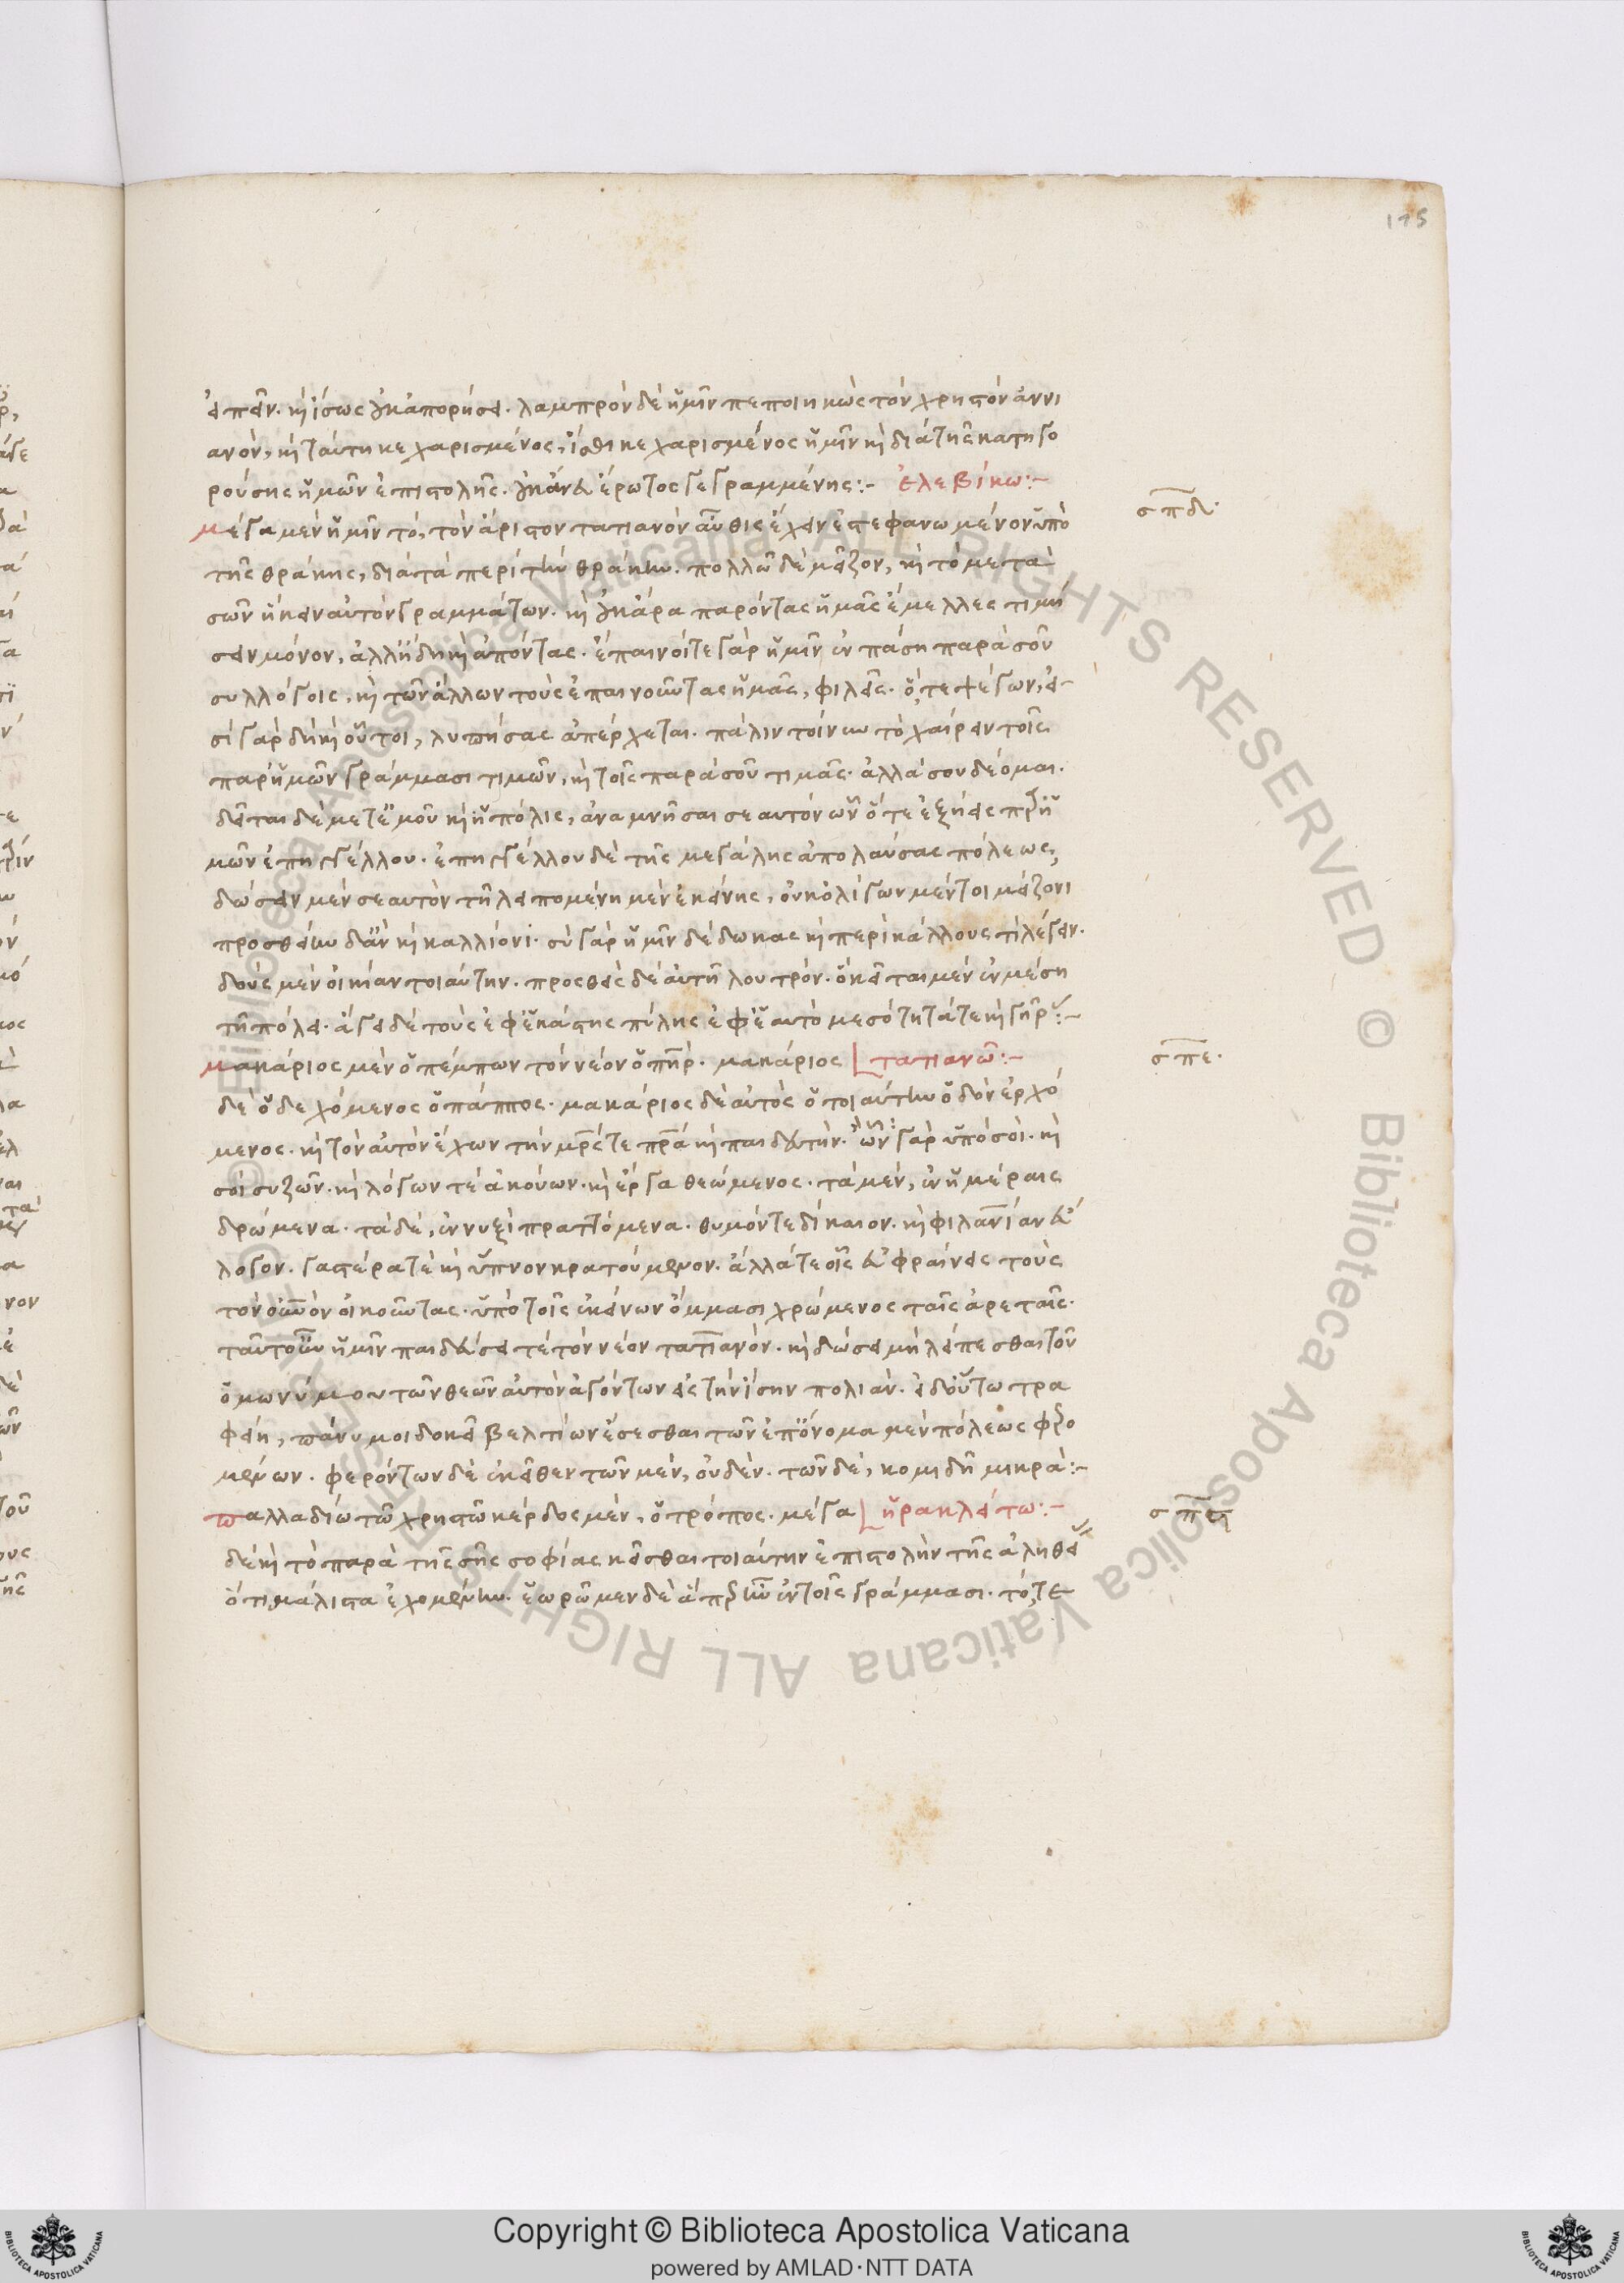 175
εἰπεῖν. κ̀ ἴσως οὐκ ἀπορήσει. λαμπρὸν δὲ ἡμῖν πεποιηκὼς τὸν χρηστὸν ἀννι
ανὸν, κ̀ ταύτῃ κεχαρισμένος, ἴσθι κεχαρισμένος ἡμῖν κ̀ διὰ τῆς κατηγο
ρούσης ἡμῶν ἐπιστολῆς. οὐκ ἄνευ ἔρωτος γεγραμμένης:- ἐλεβίκω:-
σπδ.
μέγα μὲν ἡμῖν τὸ, τὸν ἄριστον τατιανὸν αὖθις ἔχειν ἐστεφανωμένον ὑπὸ
τῆς θράκης, διὰ τὰ περὶ τὴν θράκην. πολλῶ δὲ μεῖζον, κ̀ τὸ μετὰ
σῶν ἥκειν αὐτὸν γραμμάτων. κ̀ οὐκ ἄρα παρόντας ἡμᾶς ἔμελλες τιμή
σειν μόνον, ἀλλ' ἤδη κ̀ ἀπόντας. ἐπαινοί τε γὰρ ἡμῖν ἐν πᾶσι παρὰ σοῦ
συλλόγοις, κ̀ τῶν ἄλλων τοὺς ἐπαινοῦντας ἡμᾶς, φιλεῖς. ὅ, τε ψέγων, εἰ
σὶ γὰρ δὴ κ̀ οὗτοι, λυπήσας ἀπέρχεται. πάλιν τοίνυν τὸ χαίρειν τοῖς
παρ' ἡμῶν γράμμασι τιμῶν, κ̀ τοῖς παρὰ σοῦ τιμᾶς. ἀλλὰ σου δέομαι.
δεῖται δὲ μετ' ἐμοῦ κ̀ ἡ πόλις, ἀναμνῆσαι σεαυτὸν ὧν ὅτε ἐξῄεις παρ' ἡ
μῶν ἐπηγγέλλου. ἐπηγγέλλου δὲ τῆς μεγάλης ἀπολαύσας πόλεως,
δώσειν μὲν σεαυτὸν τῆ λειπομένη μὲν ἐκείνης, οὐκ ὀλίγων μέντοι μείζονι
προσθείην δ' ἂν κ̀ καλλίονι. σὺ γὰρ ἡμῖν δέδωκας κ̀ περὶ κάλλους τὶ λέγειν.
δοὺς μὲν οἰκίαν τοιαύτην. προσθεὶς δὲ αὐτῆ λουτρόν. ὃ κεῖται μὲν ἐν μέση
τῆ πόλει. ἄγει δὲ τοὺς ἐφ' ἑκάστης πύλης ἐφ' ἑαυτὸ
μακάριος μὲν ὁ πέμπων τὸν νέον ὁ πηρ. μακάριος τατιανῶ:-
σπε.
δὲ ὁ δεχόμενος ὁ πάππος. μακάριος δὲ αὐτὸς ὁ τοιαύτην ὁδὸν ἐρχό
μενος. κ̀ τὸν αὐτὸν ἔχων τῆς μρς τε πρα κ̀ παιδευτήν. ὢν γὰρ ὑπὸ σοὶ. κ̀
σοὶ συζῶν. κ̀ λόγων τὲ ἀκούων. κ̀ ἔργα θεώμενος. τὰ μὲν, ἐν ἡμέραις
δρώμενα. τὰ δὲ, ἐν νυξὶ πραττόμενα. θυμόν τε δίκαιον. κ̀ φιλανίαν εὔ
λογον. γαστέρα τὲ κ̀ ὕπνον κρατούμενον. ἀλλά τε οἷς εὐφραίνεις τοὺς
τὸν οὐνὸν οἰκοῦντας. ὑπὸ τοῖς ἐκείνων ὄμμασι χρώμενος ταῖς ἀρεταῖς.
ταῦτ' οὖν ἡμῖν παιδεύσει τὲ τὸν νέον τατιανόν. κ̀ δώσει μὴ λείπεσθαι τοῦ
ὁμωνύμου τῶν θεῶν αὐτὸν ἀγόντων εἰς τὴν ἴσην πολιάν. εἰ δ' οὕτω τρα
φείη, πάνυ μοι δοκεῖ βελτίων ἔσεσθαι τῶν ἐπ' ὄνομα μὲν πόλεως φερο
μένων. φερόντων δὲ ἐκεῖθεν τῶν μὲν, οὐδέν. τῶν δὲ, κομιδῆ μικρά:-
παλλαδίω τῶ χρηστῶ κέρδος μὲν, ὁ τρόπος. μέγα ἡρακλείτω:-
σπϛ
δὲ κ̀ τὸ παρὰ τῆς σῆς σοφίας κεῖσθαι τοιαύτην ἐπιστολὴν τῆς ἀληθεί
ὅτι μάλιστα ἐχομένην. ἑωρῶμεν δὲ ἐν τοῖς γράμμασι. τό, τε
Copyright © Biblioteca Apostolica Vaticana
powered by AMLAD·NTT DATA
BIBLIOTECA APOSTOLICA VATICANA
BIBLIOTECA APOSTOLICA VATICANA
© Biblioteca Apostolica Vaticana ALL RIGHTS RESERVED © Biblioteca Apostolica Vaticana ALL RIGHTS RESERVED